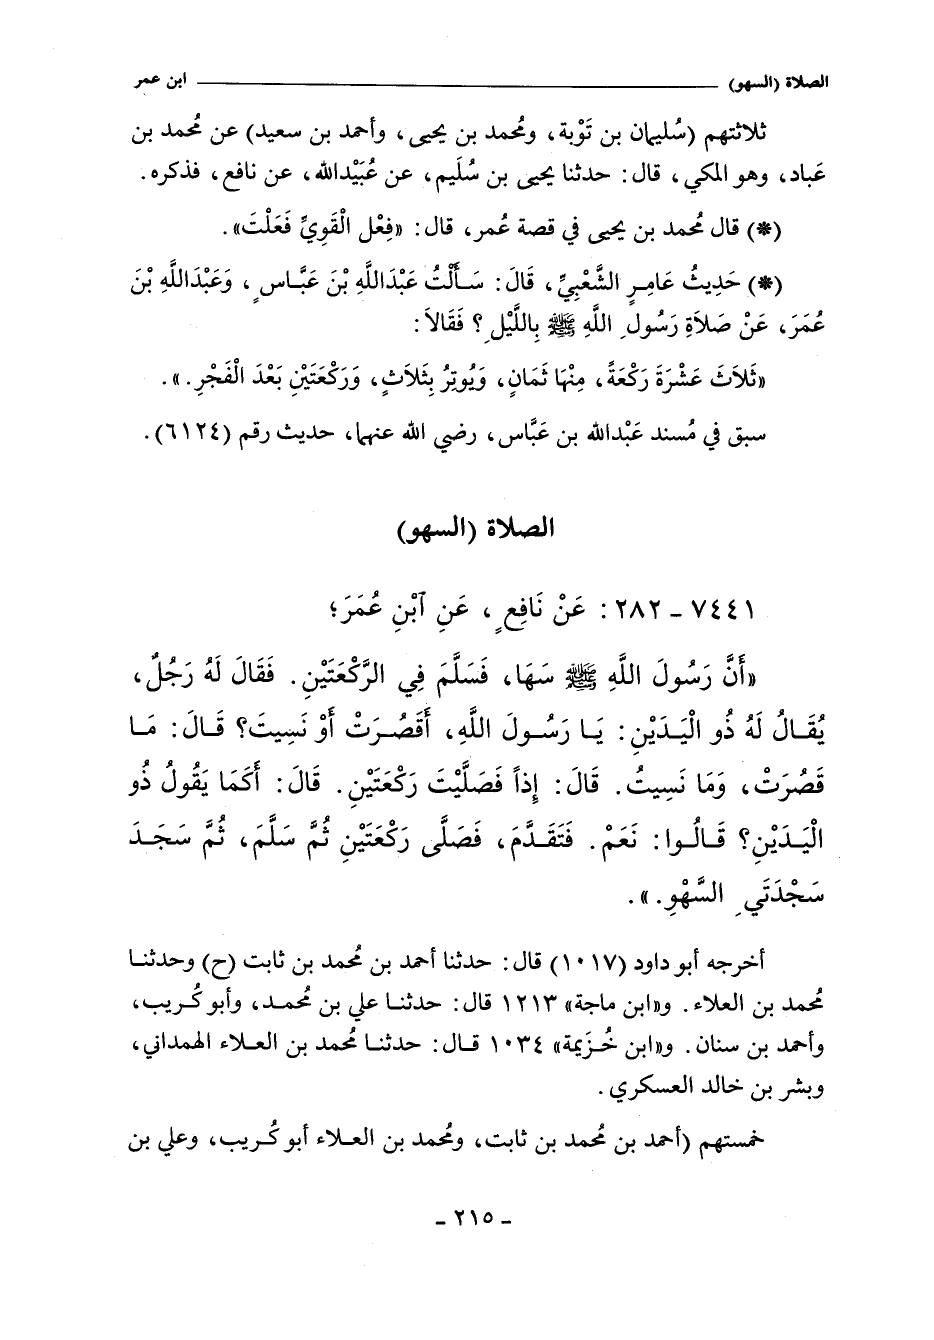 الصلاة (السهو) ــــــــــــــــــــــــــــــــــــــــ ابن عمر
ثلاثتهم (سُليمان بن تَوْبة، ومُحمد بن يحيى، وأحمد بن سعيد) عن مُحمد بن
عَباد، وهو المكي، قال: حدثنا يحيى بن سُلَيم، عن عُبَيْدالله، عن نافع، فذكره.
(*) قال مُحمد بن يحيى في قصة عُمر، قال: «فِعْل الْقَوِيِّ فَعَلْتَ».
(*) حَدِيثُ عَامِرٍ الشَّعْبِيِّ، قَالَ: سَأَلْتُ عَبْدَاللَّهِ بْنَ عَبَّاسٍ، وَعَبْدَاللَّهِ بْنَ
عُمَرَ، عَنْ صَلَاةِ رَسُولِ اللَّهِ ﷺ بِاللَّيْلِ؟ فَقَالَا:
«ثَلَاثَ عَشْرَةَ رَكْعَةً، مِنْهَا ثَمَانٍ، وَيُوتِرُ بِثَلَاثٍ، وَرَكْعَتَيْنِ بَعْدَ الْفَجْرِ.».
سبق في مُسند عَبْدالله بن عَبَّاس، رضي الله عنهما، حديث رقم (٦١٢٤).
الصلاة (السهو)
٧٤٤١ - ٢٨٢: عَنْ نَافِعٍ، عَنِ ٱبْنِ عُمَرَ؛
«أَنَّ رَسُولَ اللَّهِ ﷺ سَهَا، فَسَلَّمَ فِي الرَّكْعَتَيْنِ. فَقَالَ لَهُ رَجُلٌ،
يُقَالُ لَهُ ذُو الْيَدَيْنِ: يَا رَسُولَ اللَّهِ، أَقَصُرَتْ أَوْ نَسِيتَ؟ قَالَ: مَا
قَصُرَتْ، وَمَا نَسِيتُ. قَالَ: إِذاً فَصَلَّيْتَ رَكْعَتَيْنِ. قَالَ: أَكَمَا يَقُولُ ذُو
الْيَدَيْنِ؟ قَالُوا: نَعَمْ. فَتَقَدَّمَ، فَصَلَّى رَكْعَتَيْنِ ثُمَّ سَلَّمَ، ثُمَّ سَجَدَ
سَجْدَتَيِ السَّهْوِ.».
أخرجه أبو داود (١٠١٧) قال: حدثنا أحمد بن مُحمد بن ثابت (ح) وحدثنا
مُحمد بن العلاء. و«ابن ماجة» ١٢١٣ قال: حدثنا علي بن مُحمد، وأبو كُريب،
وأحمد بن سنان. و«ابن خُزَيمة» ١٠٣٤ قال: حدثنا مُحمد بن العلاء الهمداني،
وبشر بن خالد العسكري.
خمستهم (أحمد بن مُحمد بن ثابت، ومُحمد بن العلاء أبو كُريب، وعلي بن
- ٢١٥ -